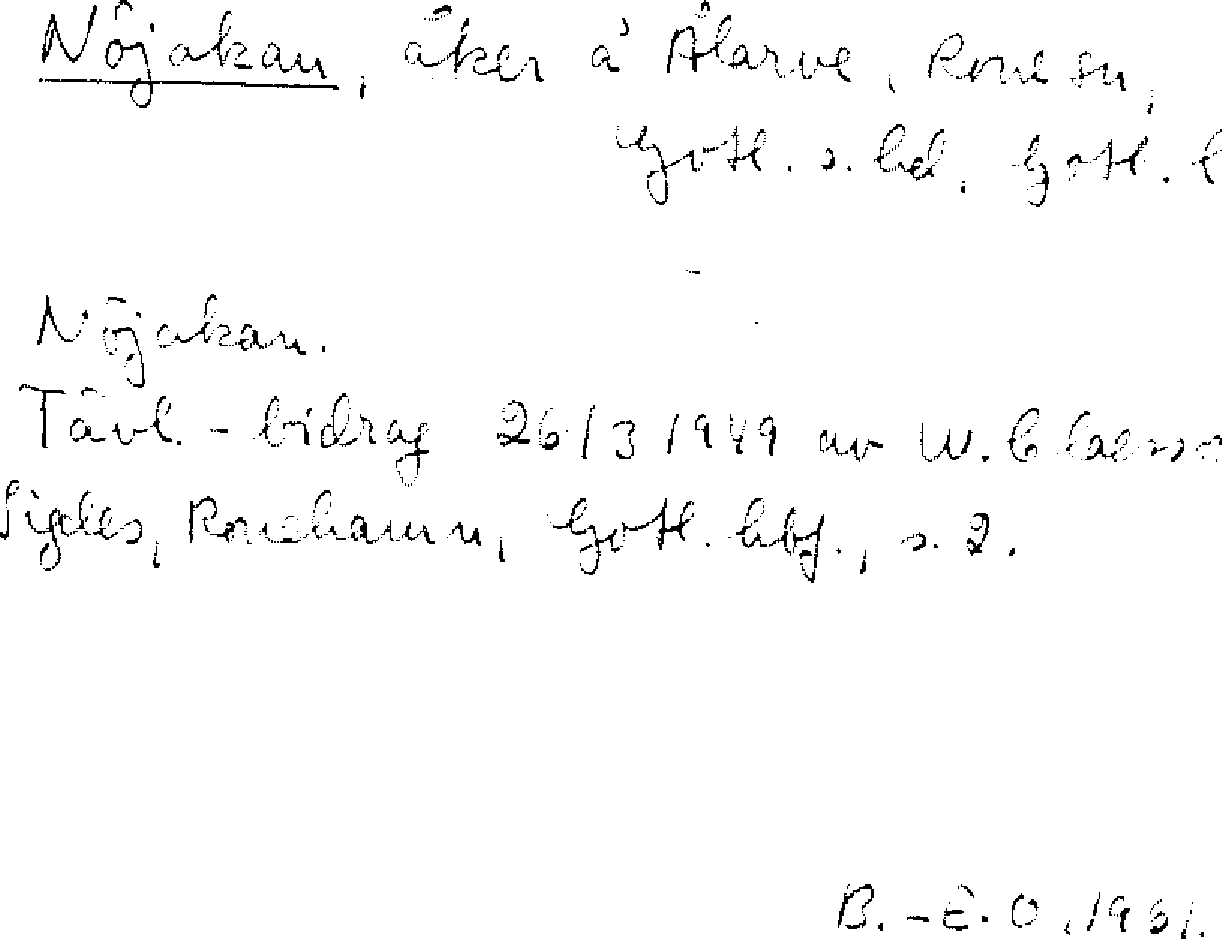 Nöjakan, åker å Ålarve, Rone sn,
Gotl. s. hd, Gotl. l
Nöjakan.
Tävl. - bidrag 26/3 1949 av W. Claesso
Sigdes, Ronehamn, Gotl. hbf., s. 2.
B. - E. O, 1981.